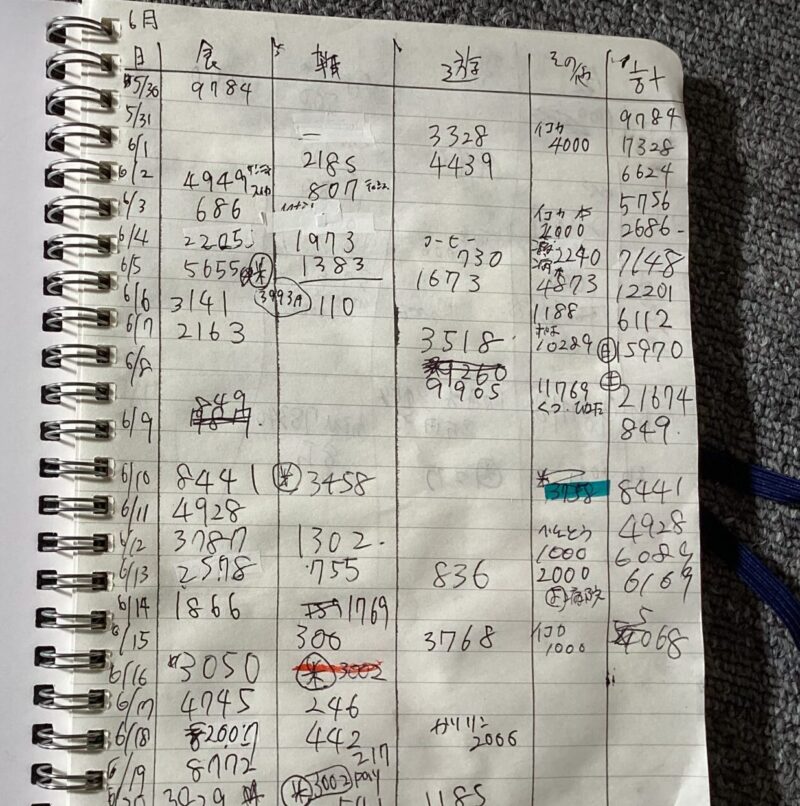 6月
日 食 遊 その他 計
5/30 9784 9784
5/31 3328 イコカ 4000 7328
6/1 2185 4439 6624
6/2 4949 807 5756
6/3 686 イコカ 2000 2686
6/4 2205 1973 コーヒー 730 2240 7148
6/5 5655 米 1383 1673 4873 12201
6/6 3141 3993 110 1188 6112
6/7 2163 3518 10289 15970
6/8 9905 11769 21674
6/9 849 849
6/10 8441 米 3458 3758 8441
6/11 4928 4928
6/12 3787 1302 べんとう 1000 6089
6/13 2578 755 836 2000 病院 6169
6/14 1866 1769
6/15 300 3768 イコカ 1000 5068
6/16 3050 米 3002
6/17 4745 246
6/18 8200 442 ガソリン 2006
6/19 8772 217
3029 米 3002 pay 1185